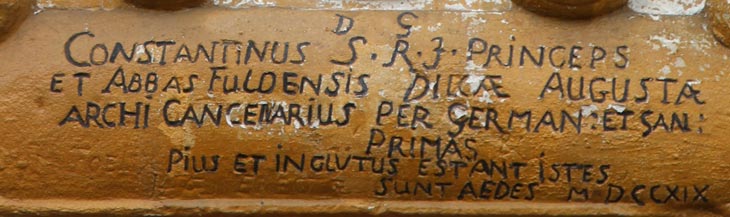 D G
CONSTANTINUS S.R.J. PRINCEPS
ET ABBAS FULDENSIS AUGUSTÆ
ARCHI CANCELLARIUS PER GERMAN: ET GAN:
PRIMAS
PIUS ET INGLŰTUS EST ANT ISTES
SUNT AEDES M DCCXIX